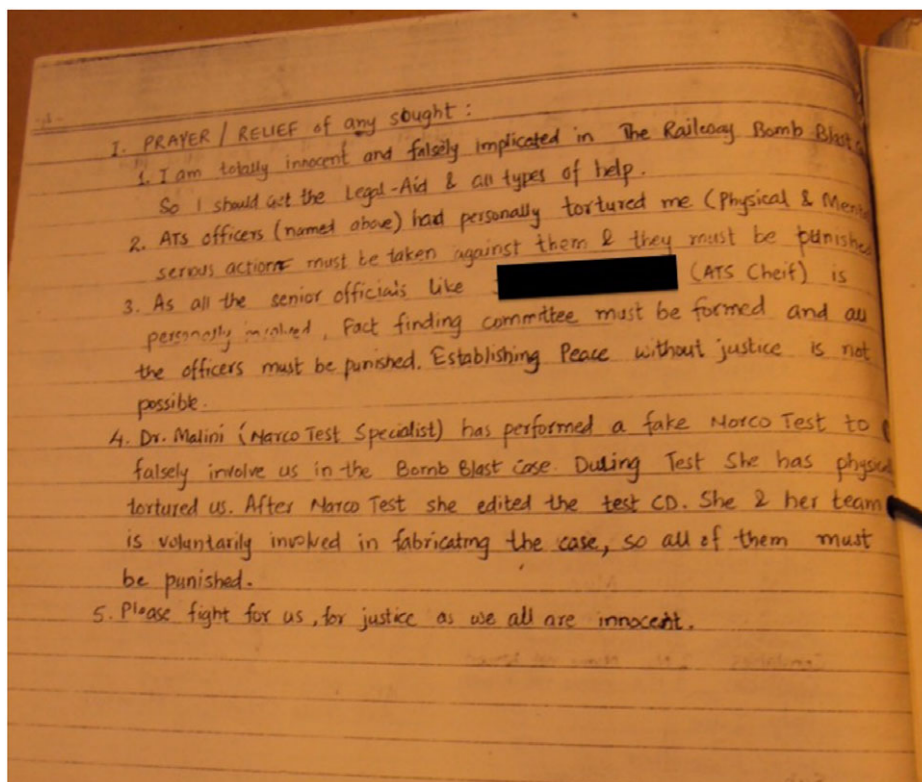 I. PRAYER / RELIEF of any sought :
1. I am totally innocent and falsely implicated in The Railway Bomb Blast
So I should Get the Legal-Aid & all types of help.
2. ATS officers (named above) had personally tortured me (Physical & Mental
serious action must be taken against them & they must be punished
3. As all the senior officials like (ATS Cheif) is
personally involved, Fact finding committee must be formed and all
the officers must be punished. Establishing Peace without justice is not
possible.
4. Dr. Malini (Narco Test Specialist) has performed a fake Norco Test to
falsely involve us in the Bomb Blast Case. During Test She has physical
tortured us. After Narco Test she edited the test CD. She & her team
is voluntarily involved in fabricating the case, so all of them must
be punished.
5. Please fight for us, for justice as we all are innocent.